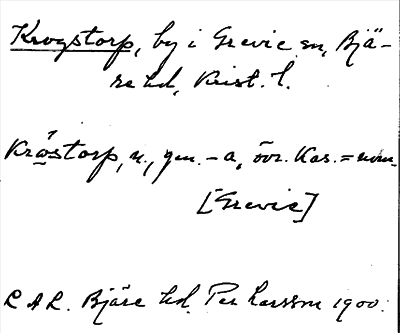 Krogstorp, by i Grevie sn, Bjä-
re hd, Krist. l.
Kråstorp, n., gen. -a, övr. Kas. = nom.
[Grevie]
L A L. Bjäre hd. Per Larsson 1900.